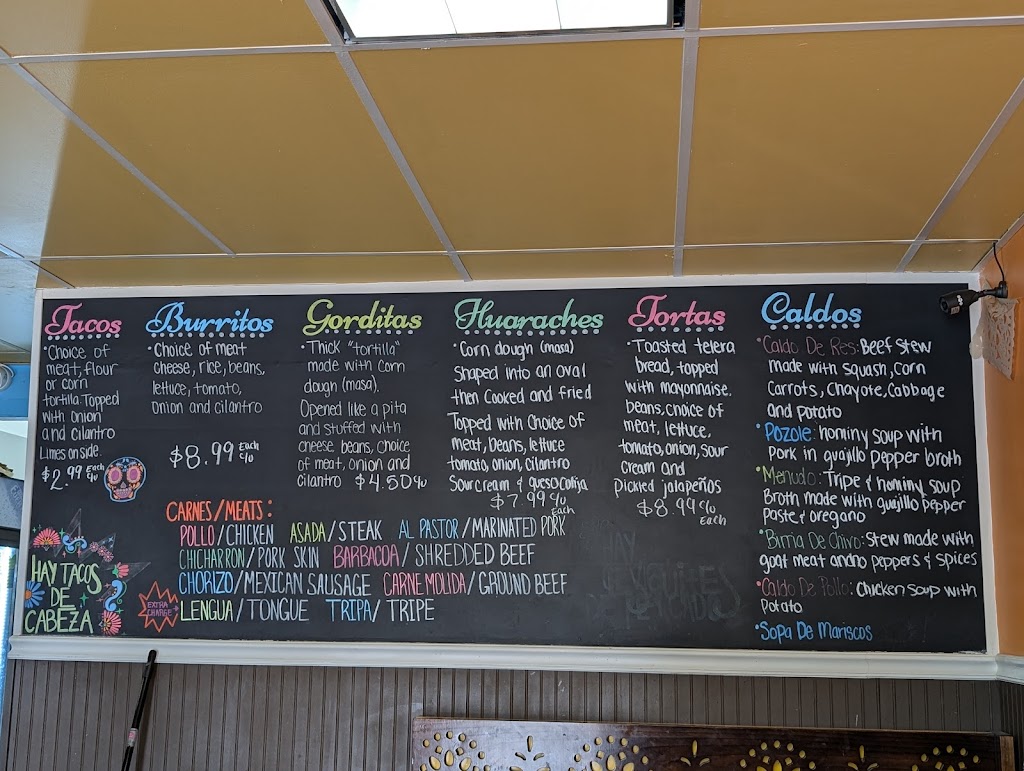 Tacos
• Choice of
meat, flour
or corn
tortilla. Topped
with onion
and cilantro
Limes on side.
$2.99 Each c/u
Burritos
• Choice of meat
cheese, rice, beans,
lettuce, tomato,
Onion and cilantro
$8.99 Each c/u
Gorditas
• Thick "tortilla"
made with corn
dough (masa).
Opened like a pita
and stuffed with
cheese beans, choice
of meat, onion and
cilantro $4.50 c/u
Huaraches
• Corn dough (masa)
Shaped into an oval
then cooked and fried
Topped with choice of
meat, beans, lettuce
tomato, onion, cilantro
Sour cream & queso cotija
$7.99 c/u
Each
Tortas
• Toasted telera
bread, topped
with mayonnaise.
beans, choice of
meat, lettuce,
tomato, onion, sour
cream and
pickled jalapeños
$8.99 c/u
Each
Caldos
• Caldo De Res: Beef Stew
made with squash, corn
Carrots, Chayote, Cabbage
and potato
• Pozole: hominy soup with
Pork in guajillo pepper broth
• Menudo: Tripe & hominy soup
Broth made with guijillo pepper
Paste & oregano
• Birria De Chivo: Stew made with
goat meat ancho peppers & spices
• Caldo De Pollo: Chicken soup with
Potato
• Sopa De Mariscos
CARNES/MEATS:
POLLO/CHICKEN ASADA/STEAK AL PASTOR/MARINATED PORK
CHICHARRON/PORK SKIN BARBACOA/SHREDDED BEEF
CHORIZO/MEXICAN SAUSAGE CARNE MOLIDA/GROUND BEEF
EXTRA
CHARGE
LENGUA/TONGUE TRIPA/TRIPE
HAY TACOS
DE
CABEZA
HAY